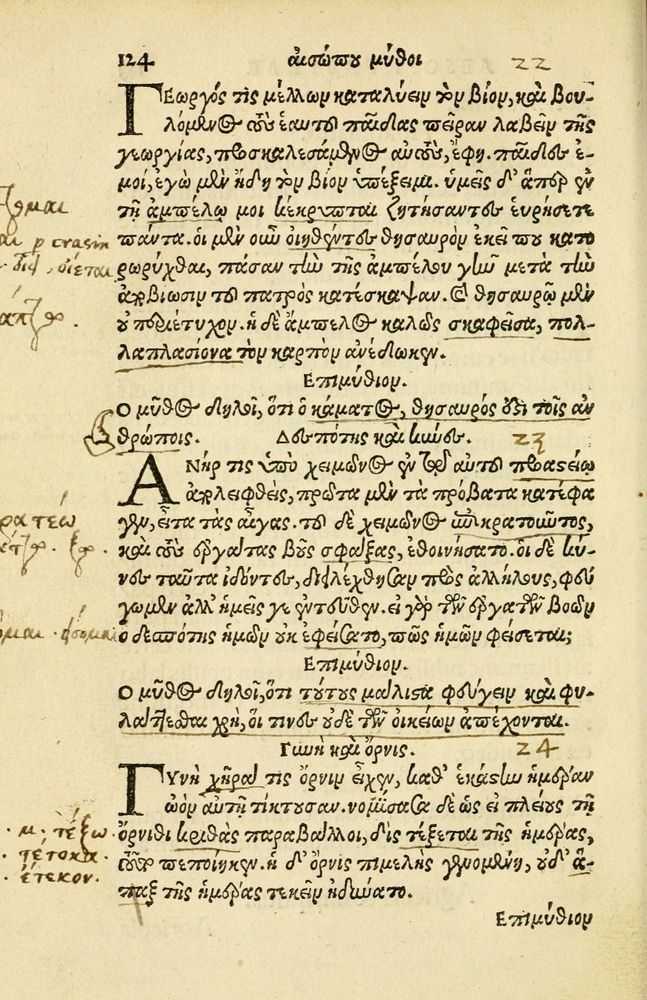 124 αἰσώπου μῦθοι 22
Γεωργός τις μέλλων καταλύειν τὸν βίον, καὶ βου-
λόμενος τοὺς ἑαυτοῦ παῖδας πεῖραν λαβεῖν τῆς
γεωργίας, προσκαλεσάμενος αὐτούς, ἔφη. παῖδες ἐ-
μοί, ἐγὼ μὲν ἤδη τὸν βίον ὑπέξειμι. ὑμεῖς δ' ἅπερ ἐν
τῇ ἀμπέλῳ μοι κέκρυπται ζητήσαντες εὑρήσετε
πάντα. οἱ μὲν οὖν οἰηθέντες θησαυρὸν ἐκεῖ που κατο
ρωρύχθαι, πᾶσαν τὴν τῆς ἀμπέλου γῆν μετὰ τὴν
ἀποβίωσιν τοῦ πατρὸς κατέσκαψαν. καὶ θησαυρῷ μὲν
οὐ περιέτυχον. ἡ δὲ ἄμπελος καλῶς σκαφεῖσα, πολ-
λαπλασίονα τὸν καρπὸν ἀνέδωκεν.
Επιμύθιον.
Ο μῦθος δηλοῖ, ὅτι ὁ κάματος, θησαυρός ἐστι τοῖς ἀν
θρώποις. Δεσπότης καὶ κύνες. 23
Ανήρ τις ὑπὸ χειμῶνος ἐν τῷ αὐτοῦ προαστείῳ
ἀποληφθείς, πρῶτα μὲν τὰ πρόβατα κατέφα
γεν, εἶτα τὰς αἶγας. τοῦ δὲ χειμῶνος ἐπικρατοῦντος,
καὶ τοὺς ἐργάτας βοῦς σφάξας, ἐθοινήσατο. οἱ δὲ κύ-
νες ταῦτα ἰδόντες, διελέχθησαν πρὸς ἀλλήλους, φεύ
γωμεν ἀλλ' ἡμεῖς γε ἐντεῦθεν. εἰ γὰρ τῶν ἐργατῶν βοῶν
ὁ δεσπότης ἡμῶν οὐκ ἐφείσατο, πῶς ἡμῶν φείσεται;
Επιμύθιον.
Ο μῦθος δηλοῖ, ὅτι τούτους μάλιστα φεύγειν καὶ φυ-
λάττεσθαι χρή, οἵ τινες οὐδὲ τῶν οἰκείων ἀπέχονται.
Γυνὴ καὶ ὄρνις. 24
Γυνὴ χήρα τις ὄρνιν εἶχεν, καθ' ἑκάστην ἡμέραν
ὠὸν αὐτῇ τίκτουσαν. νομίσασα δὲ ὡς εἰ πλείους τῇ
ὄρνιθι κριθὰς παραβάλλοι, δὶς τέξεται τῆς ἡμέρας,
τοῦτο πεποίηκεν. ἡ δ' ὄρνις πιμελὴς γενομένη, οὐδ' ἅ-
παξ τῆς ἡμέρας τεκεῖν ἠδύνατο.
Επιμύθιον
p crasin
οἴεται
μ. τέξω
τέτοκα.
ἔτεκον.